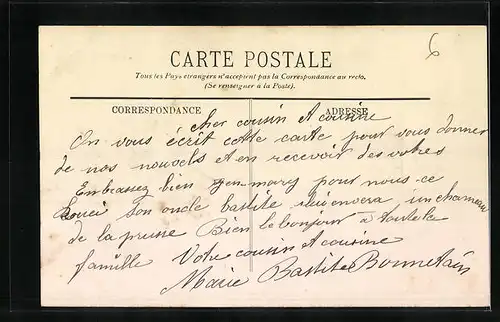 6
CARTE POSTALE
Tous les Pays étrangers n'acceptent pas la Correspondance au recto.
(Se renseigner à la Poste).
CORRESPONDANCE
ADRESSE
cher cousin et cousine
On vous écrit cette carte pour vous donner
de nos nouvels et en recevoir des votres
Embrassez bien pour nous ce
son oncle bastite lui envera un chameau
de la prusse Bien le bonjour a toute la
famille Votre cousin et cousine
Marie Bastite Bonnetain